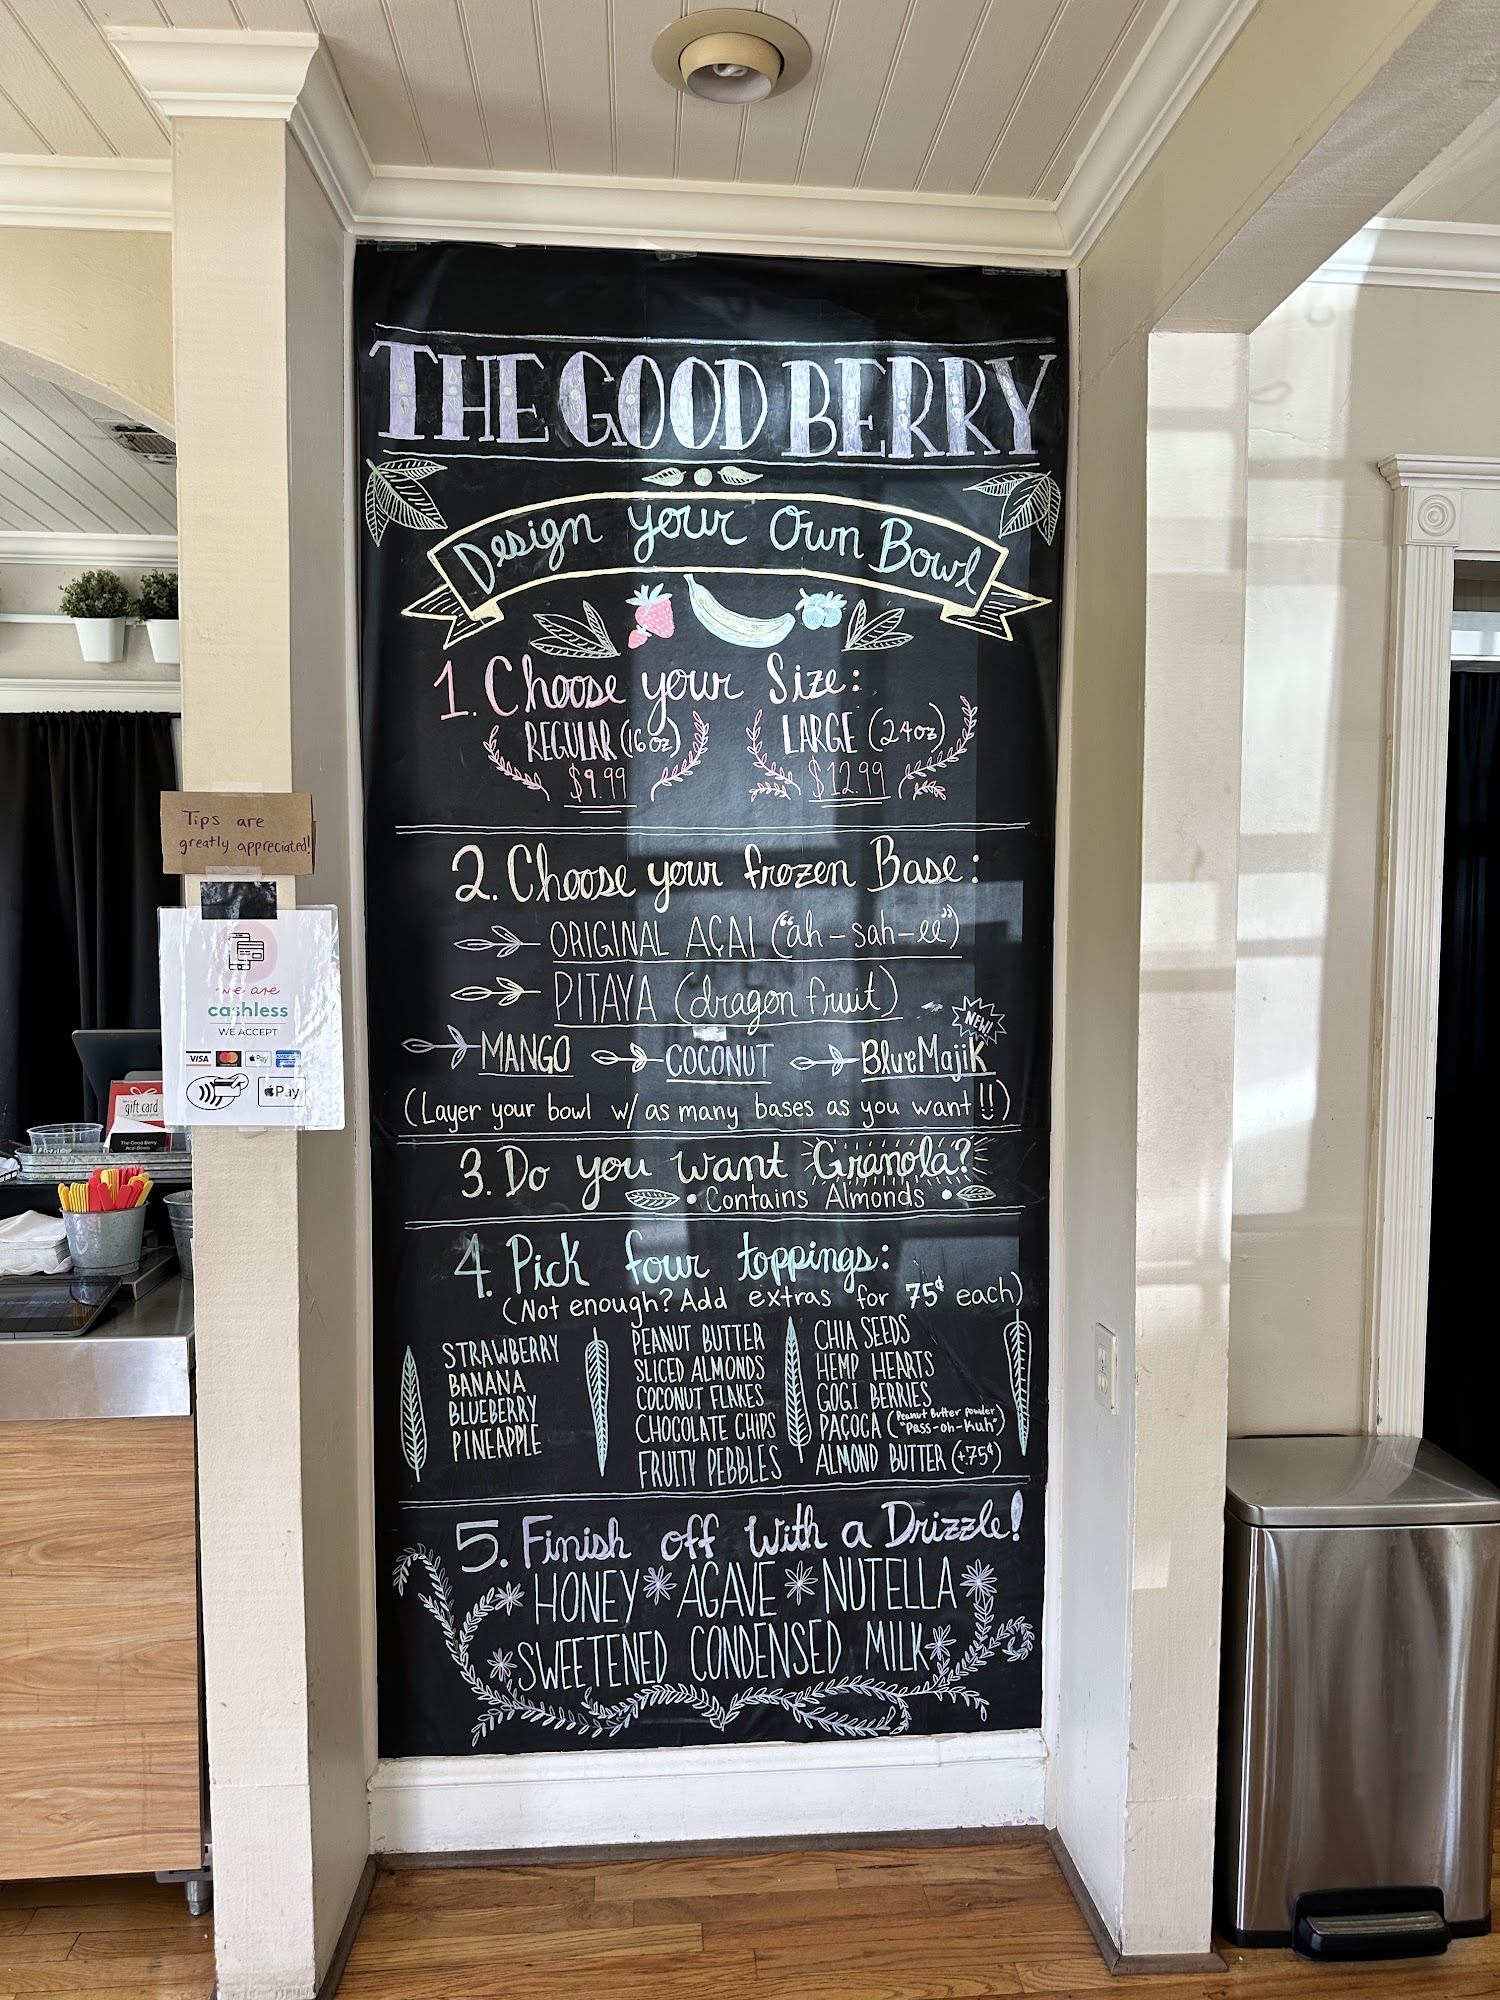 THE GOOD BERRY
Design your Own Bowl
1. Choose your Size:
REGULAR (16oz)
$9.99
LARGE (24oz)
$12.99
2. Choose your frozen Base:
ORIGINAL AÇAI ("ah-sah-ee")
PITAYA (dragon fruit)
NEW!
MANGO COCONUT BlueMajiK
(Layer your bowl w/ as many bases as you want!!)
3. Do you want Granola?
• Contains Almonds •
4. Pick four toppings:
(Not enough? Add extras for 75¢ each)
STRAWBERRY
BANANA
BLUEBERRY
PINEAPPLE
PEANUT BUTTER
SLICED ALMONDS
COCONUT FLAKES
CHOCOLATE CHIPS
FRUITY PEBBLES
CHIA SEEDS
HEMP HEARTS
GOGI BERRIES
PAÇOCA (Peanut Butter powder, "Pass-oh-Kuh")
ALMOND BUTTER (+.75¢)
5. Finish off with a Drizzle!
HONEY * AGAVE * NUTELLA
SWEETENED CONDENSED MILK
Tips are
greatly appreciated!
we are
cashless
WE ACCEPT
VISA Pay
Pay
gift card
The Good Berry